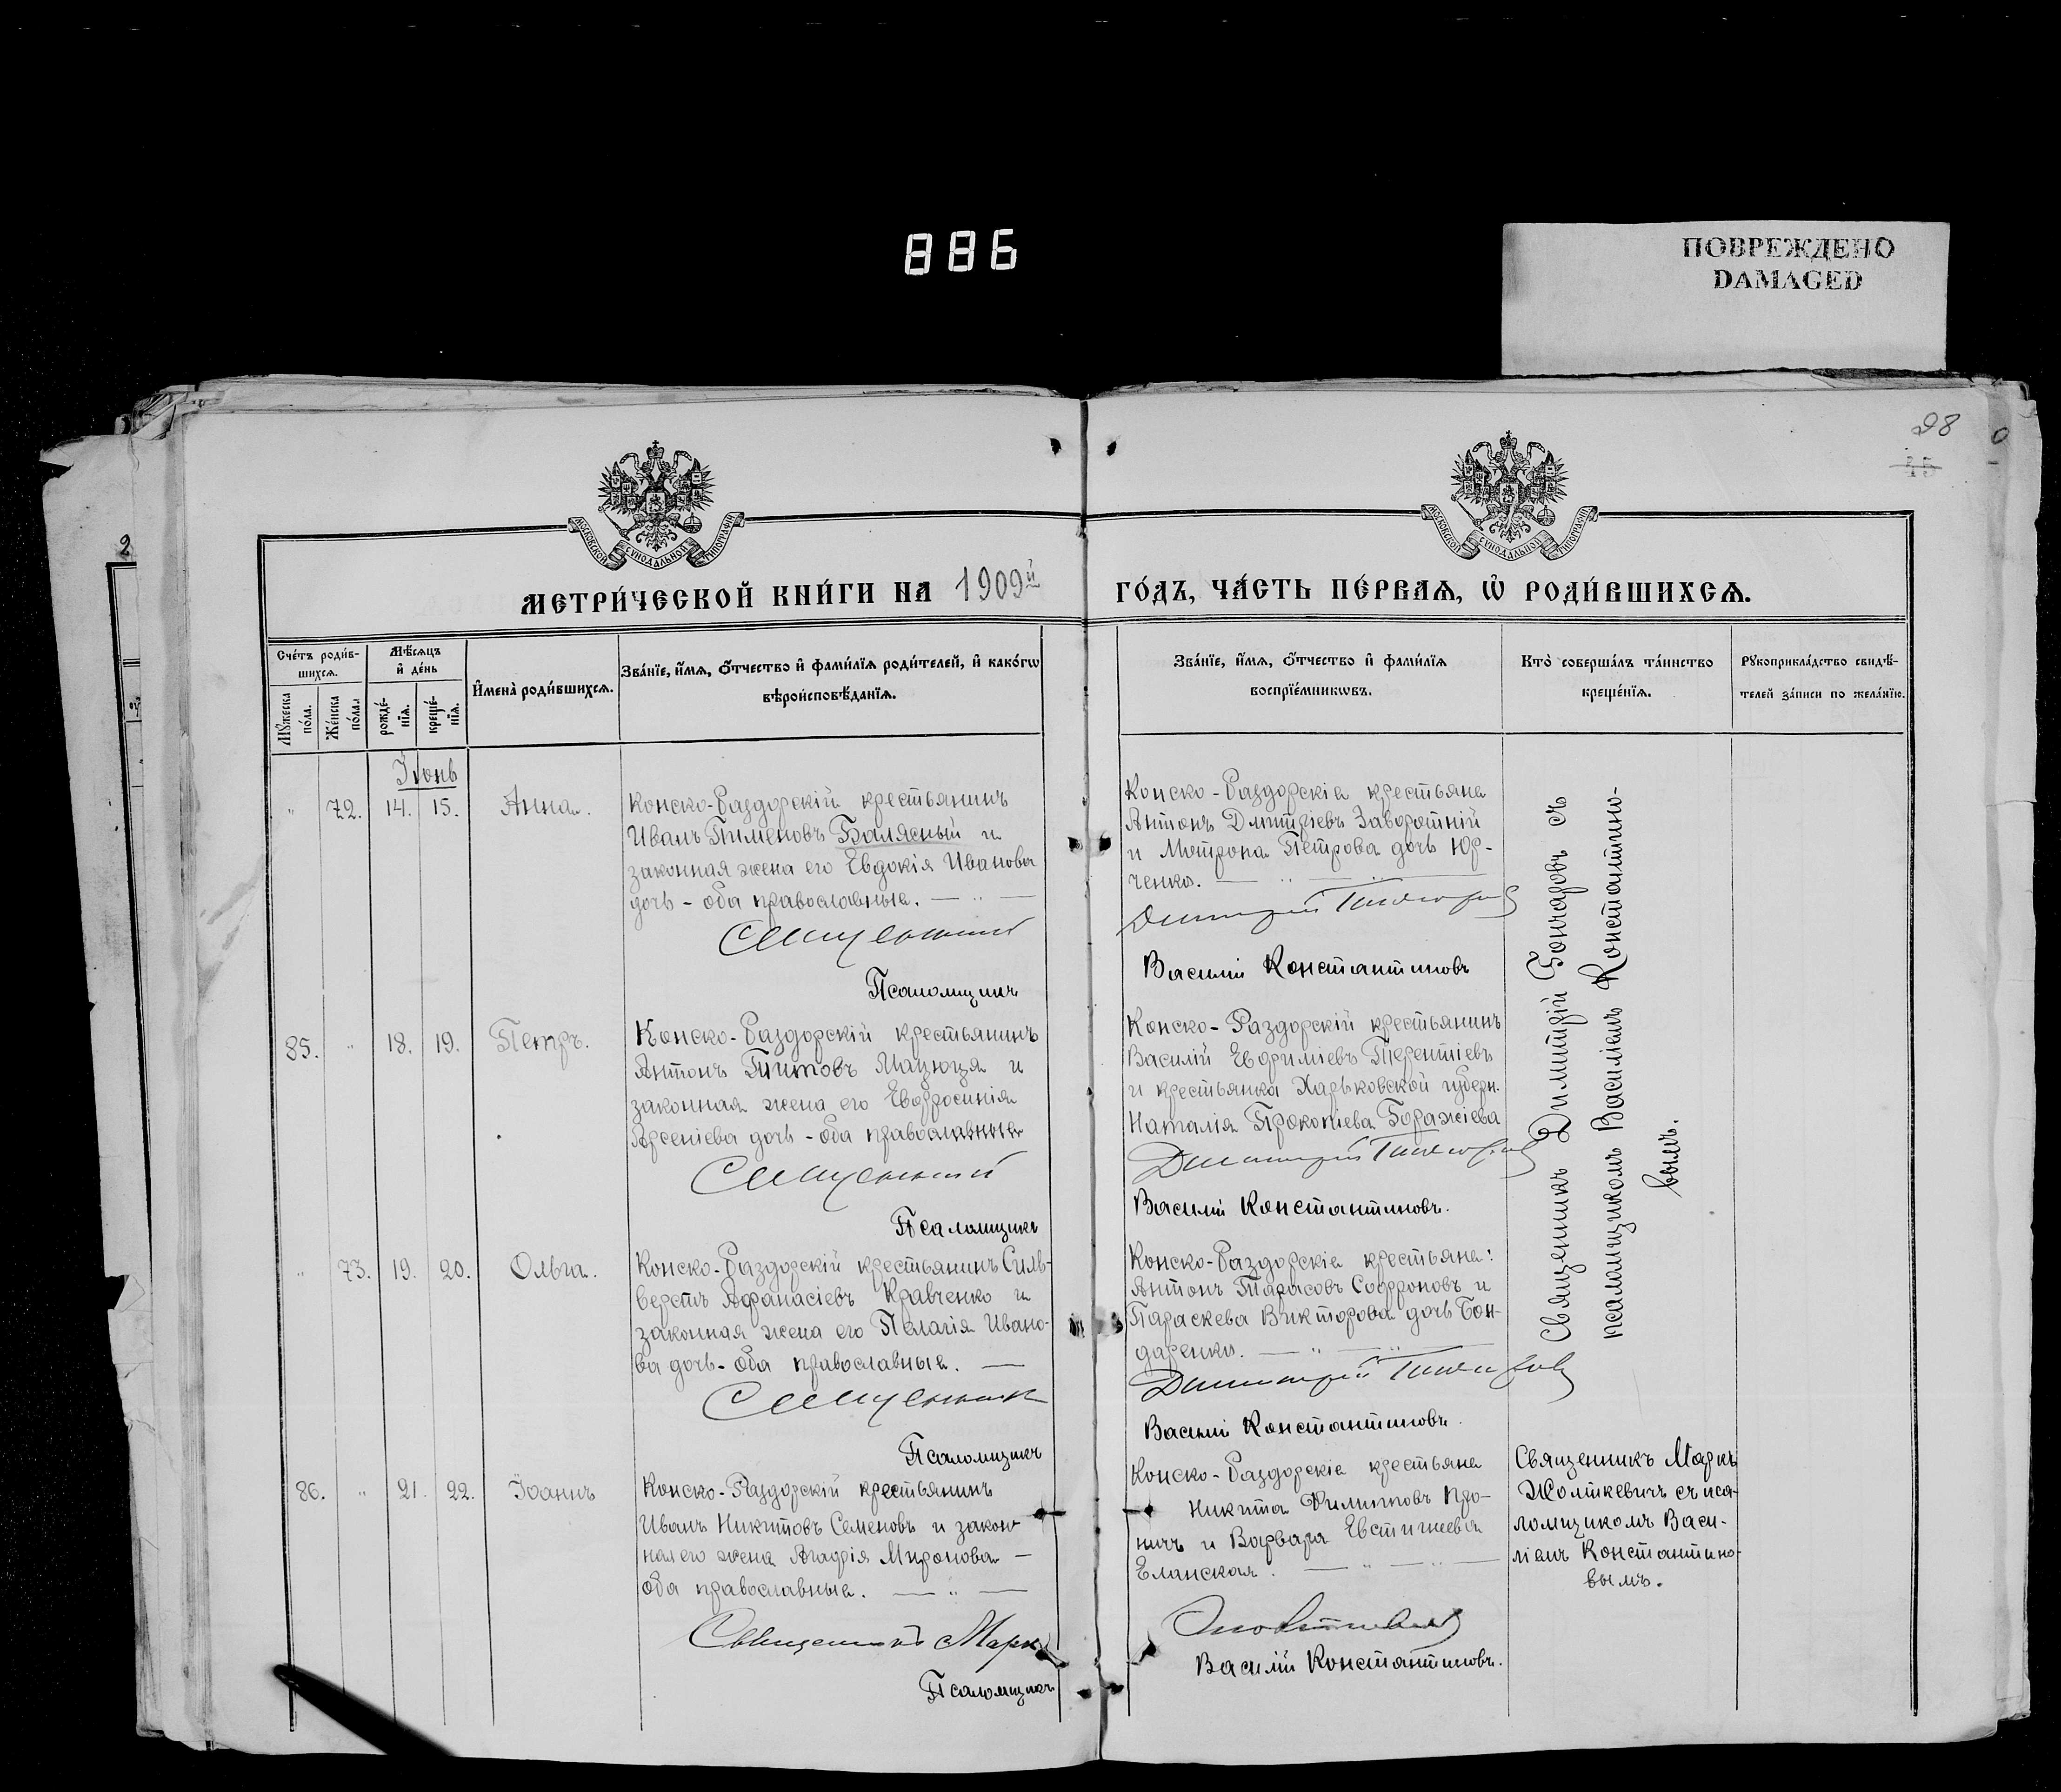 886
ПОВРЕЖДЕНО
DAMAGED
98
45
2
МОСКОВСКОЙ СѴНОДАЛЬНОЙ ТИПОГРАФІИ
МОСКОВСКОЙ СѴНОДАЛЬНОЙ ТИПОГРАФІИ
МЕТРИ́ЧЕСКОЙ КНИ́ГИ НА 1909й
ГО́ДЪ, ЧА́СТЬ ПЕ́РВАѦ, Ѡ҆ РОДИ́ВШИХСѦ.
Сче́тъ роди́в-
шихсѧ.
Мꙋ́жеска
по́ла.
Же́нска
по́ла.
Мѣ́сѧцъ
и҆ де́нь
рожде́-
нїѧ.
креще́-
нїѧ.
И҆мена̀ роди́вшихсѧ.
Зва́нїе, и҆́мѧ, ѻ҆́тчество и҆ фами́лїѧ роди́телей, и҆ како́гѡ
вѣроисповѣ́данїѧ.
Зва́нїе, и҆́мѧ, ѻ҆́тчество и҆ фами́лїѧ
воспрїе́мникѡвъ.
Кто̀ соверша́лъ та́инство
креще́нїѧ.
Рꙋкоприкла́дство свидѣ́-
телей за́писи по жела́нїю.
Іюнь
" 72. 14. 15. Анна.
Конско-Раздорскій крестьянинъ
Иванъ Пименовъ Балясный и
законная жена его Евдокія Иванова
дочь - оба православные. — " —
Священникъ
Псаломщикъ
Конско-Раздорскіе крестьяне
Антонъ Дмитріевъ Заворотній
и Мотрона Петрова дочь Юр-
ченко. — " — " —
Димитрій Гончаровъ
Василій Константиновъ
85. " 18. 19. Петръ.
Конско-Раздорскій крестьянинъ
Антонъ Титовъ Мацюця и
законная жена его Евфросинія
Арсеніева дочь - оба православные
Священникъ
Псаломщикъ
Конско-Раздорскій крестьянинъ
Василій Евфиміевъ Терентіевъ
и крестьянка Харьковской губерн.
Наталія Прокопіева Боражіева
Димитрій Гончаровъ
Василій Константиновъ.
" 73. 19. 20. Ольга.
Конско-Раздорскій крестьянинъ Силь-
верстъ Афанасіевъ Кравченко и
законная жена его Пелагія Ивано-
ва дочь - оба православные. —
Священникъ
Псаломщикъ
Конско-Раздорскіе крестьяне:
Антонъ Тарасовъ Софроновъ и
Параскева Викторова дочь Бон-
даренко. — " — " —
Димитрій Гончаровъ
Василій Константиновъ.
Священникъ Димитрій Гончаровъ съ
псаломщикомъ Василіемъ Константино-
вымъ.
86. " 21. 22. Іоаннъ
Конско-Раздорскій крестьянинъ
Иванъ Никитовъ Семеновъ и закон-
ная его жена Агафія Миронова —
оба православные. — " —
Священникъ Маркъ
Псаломщикъ
Конско-Раздорскіе крестьяне
Никита Филипповъ Про-
ничъ и Варвара Евстигнеева
Еланская. — " — " —
Жолткевичъ
Василій Константиновъ.
Священникъ Маркъ
Жолткевичъ съ пса-
ломщикомъ Васи-
ліемъ Константино-
вымъ.